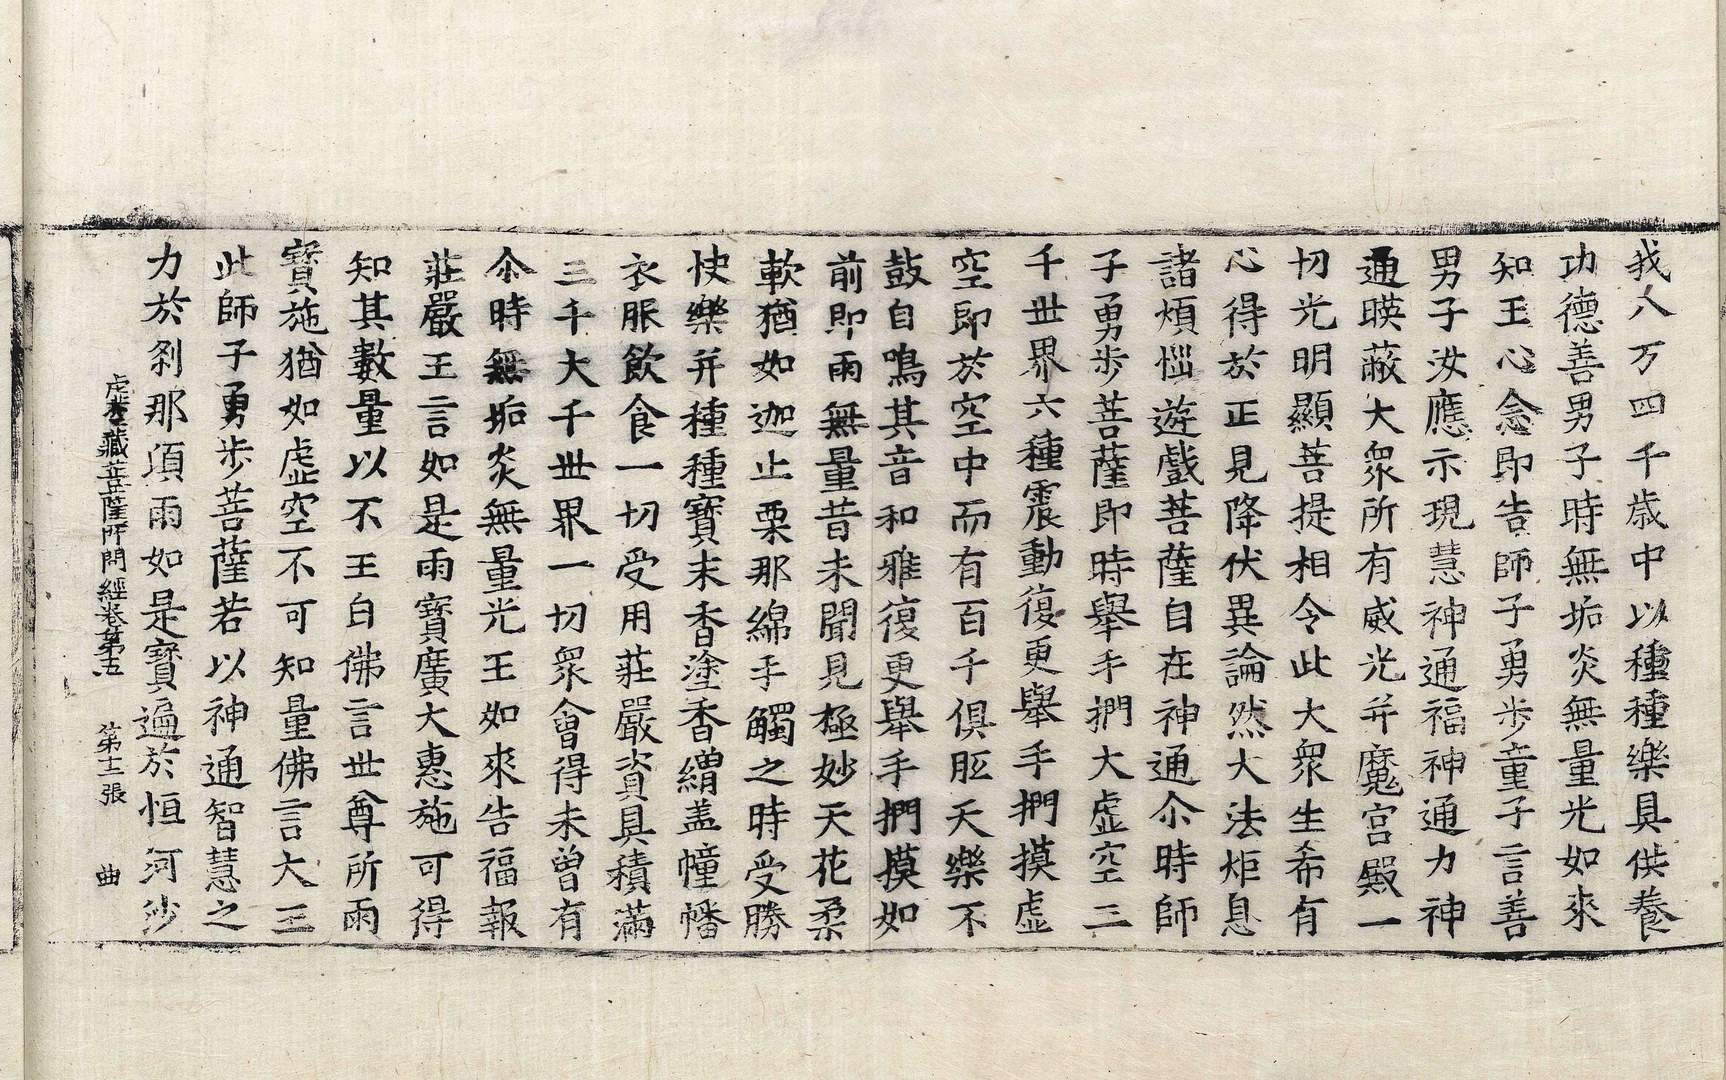 我八万四千歳中以種種樂具供養
功德善男子時無垢炎無量光如來
知王心念即告師子勇步童子言善
男子汝應示現慧神通福神通力神
通暎蔽大眾所有威光并魔宮殿一
切光明顯菩提相令此大眾生希有
心得於正見降伏異論然大法炬息
諸煩惱遊戲菩薩自在神通尒時師
子勇步菩薩即時舉手捫大虛空三
千世界六種震動復更舉手捫摸虛
空即於空中而有百千俱胝天樂不
鼓自鳴其音和雅復更舉手捫摸如
前即雨無量昔未聞見極妙天花柔
軟猶如迦止栗那綿手觸之時受勝
快樂并種種寶末香塗香繒盖幢幡
衣服飲食一切受用莊嚴資具積滿
三千大千世界一切眾會得未曾有
尒時無垢炎無量光王如來告福報
莊嚴王言如是雨寶廣大惠施可得
知其數量以不王白佛言世尊所雨
寶施猶如虛空不可知量佛言大王
此師子勇步菩薩若以神通智慧之
力於剎那頃雨如是寶遍於恒河沙
虛空藏菩薩所問經卷第五 第十二張 曲